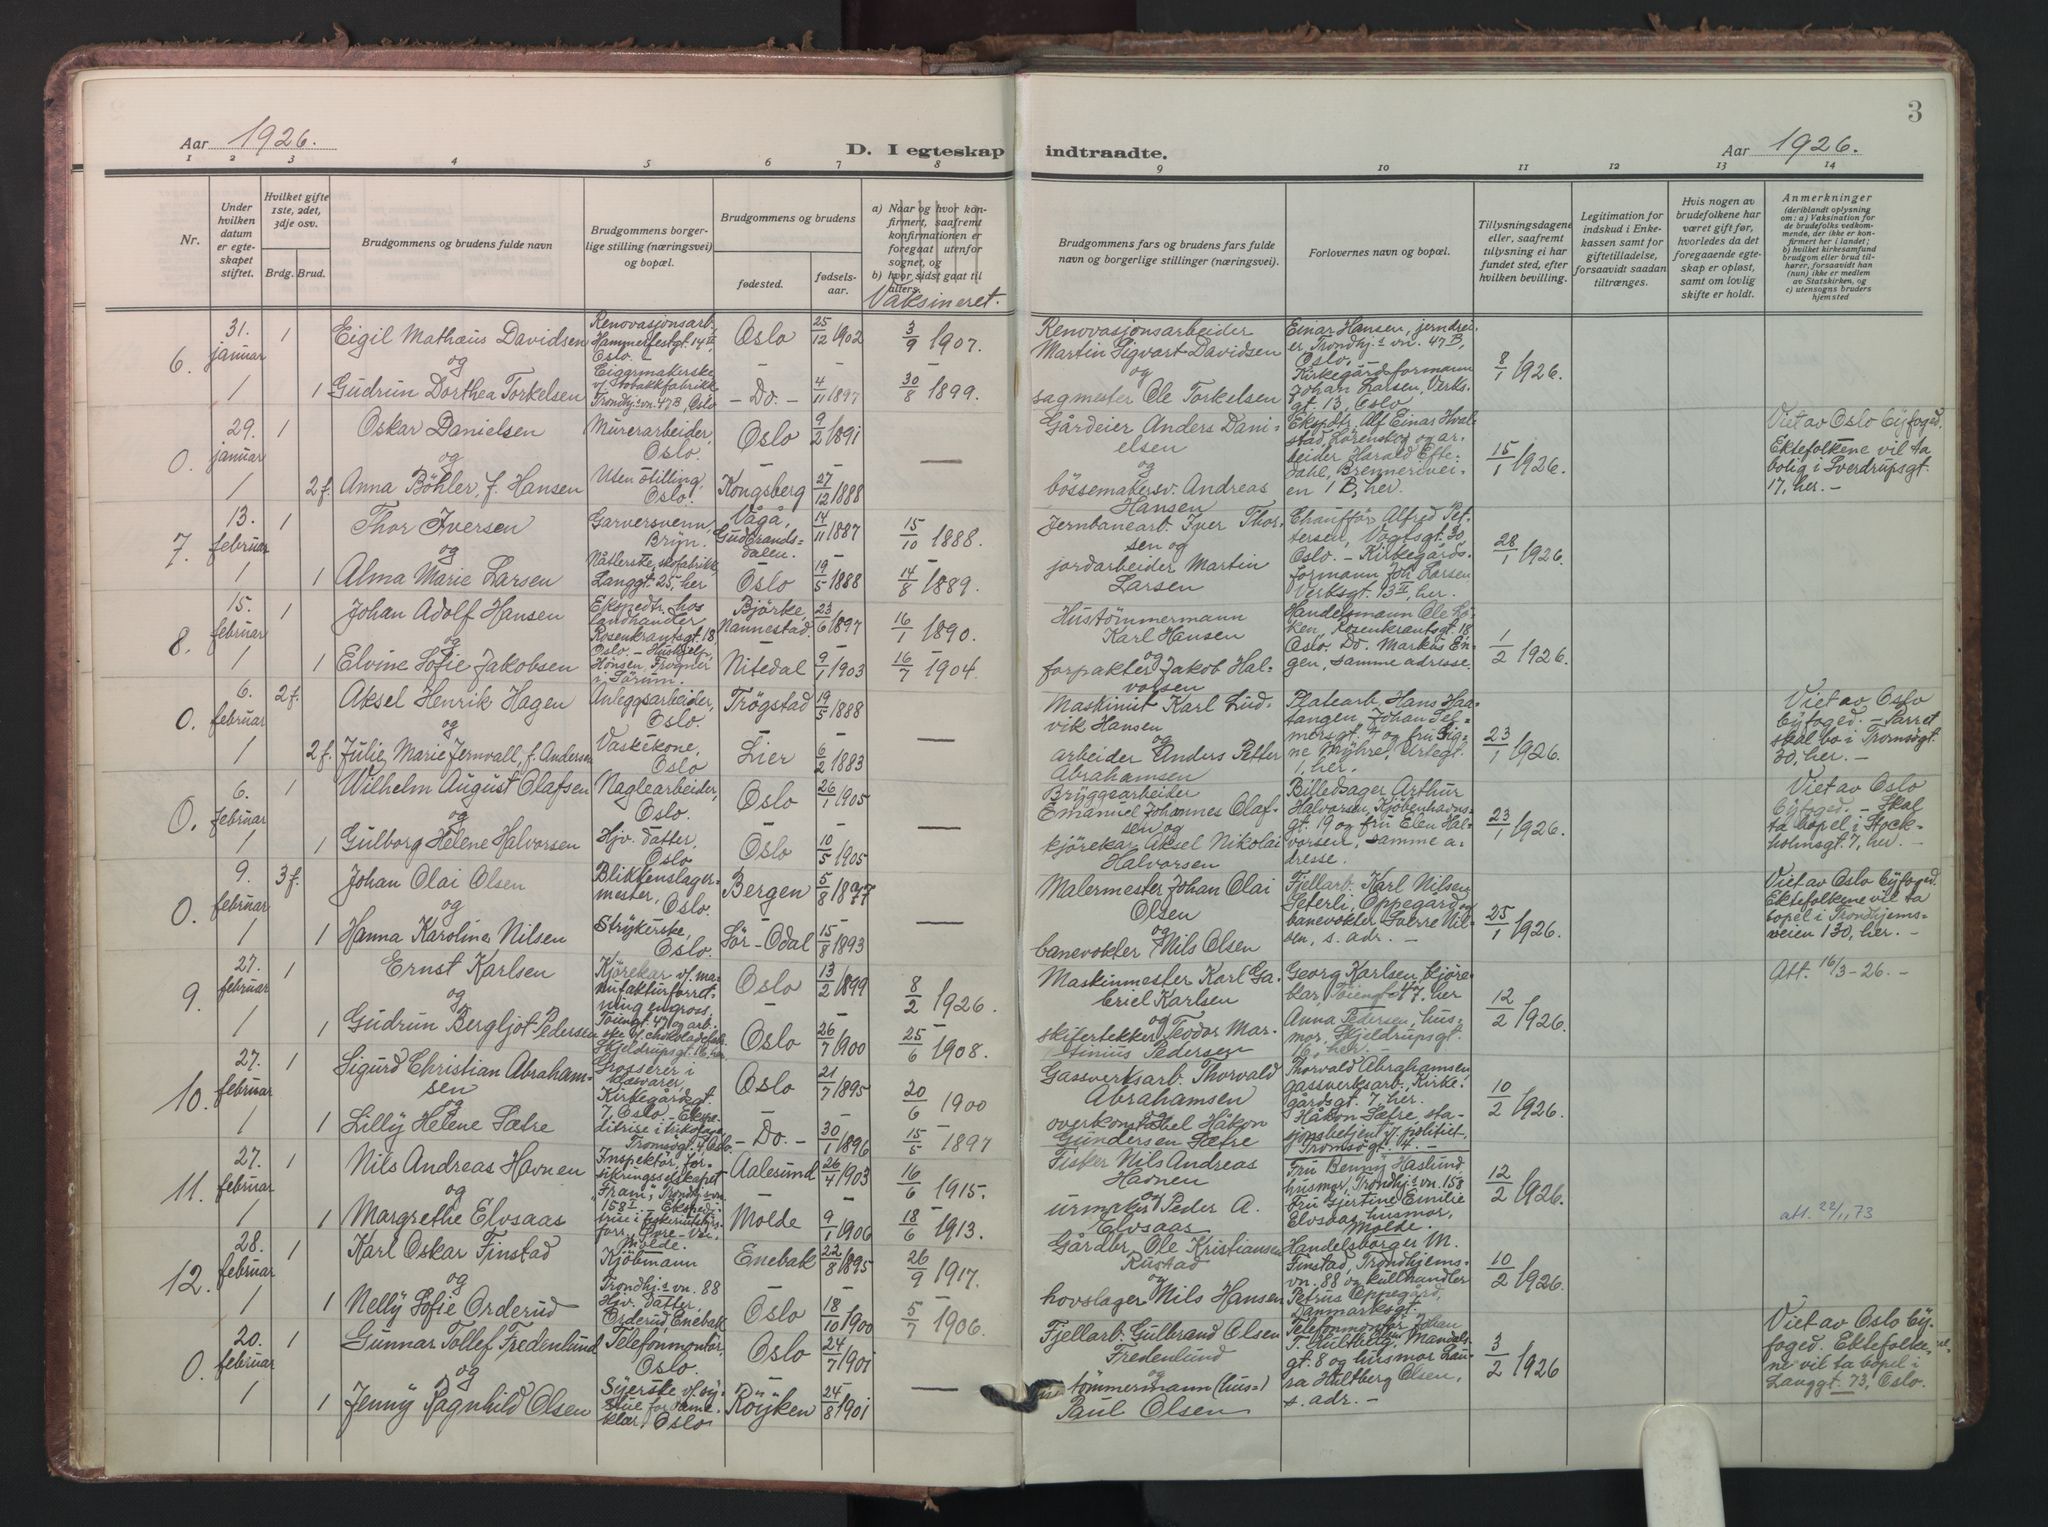 3
Aar 1926.
D. I egteskap indtraadte.
Aar 1926.
1 2 3 4 5 6 7 8 9 10 11 12 13 14
Nr.
Under hvilken datum er egteskapet stiftet.
Hvilket gifte 1ste, 2det, 3dje osv.
Brdg. Brud.
Brudgommens og brudens fulde navn
Brudgommens borgerlige stilling (næringsvei) og bopæl.
Brudgommens og brudens
fødested. fødselsaar.
a) Naar og hvor konfirmert, saafremt konfirmationen er foregaat utenfor sognet, og
b) hvor sidst gaat til alters.
Vaksineret.
Brudgommens fars og brudens fars fulde navn og borgerlige stillinger (næringsvei).
Forlovernes navn og bopæl.
Tillysningsdagene eller, saafremt tillysning ei har fundet sted, efter hvilken bevilling.
Legitimation for indskud i Enkekassen samt for giftetilladelse, forsaavidt saadan tiltrænges.
Hvis nogen av brudefolkene har været gift før, hvorledes da det foregaaende egteskap er opløst, samt om lovlig skifte er holdt.
Anmerkninger
(deriblandt oplysning om: a) Vaksination for de brudefolks vedkommende, der ikke er konfirmert her i landet; b) hvilket kirkesamfund brudgom eller brud tilhører, forsaavidt han (hun) ikke er medlem av Statskirken, og c) utensogns bruders hjemsted
6. 31. januar 1
Eigil Mathæus Davidsen
Renovasjonsarb. Hammerfestgt. 14 II, Oslo. -
Oslo 25/12 1902 3/9 1907.
Renovasjonsarbeider Martin Sigvart Davidsen
og
1 1 Gudrun Dorthea Torkelsen
v. tobakkfabrikk, Trondhj.s vn. 47 B, Oslo
- Do. - 4/11 1897 30/8 1899.
sagmester Ole Torkelsen
Einar Hansen, jerndreier, Trondhj.s vn. 47 B, Oslo.
Kirkegårdsformann Johan Larsen, Verksgt. 13, Oslo
8/1 1926.
0. 29. januar 1
Oskar Danielsen
Murerarbeider, Oslo.
Oslo 9/2 1891
Gårdeier Anders Danielsen
og
1 2 f. Anna Böhler, f. Hansen
Uten stilling, Oslo.
Kongsberg 27/12 1888
bössemakersv. Andreas Hansen
Ekspdtr. Alf Einar Hvalstad, Lörenskog og arbeider Harald Eftedahl, Brenneriveien 1 B, her.
15/1 1926.
Viet av Oslo byfoged. Ektefolkene vil ta bolig i Sverdrupsgt. 17, her. -
7. 13. februar 1
Thor Iversen
Garversvenn, Bryn.
Vågå, Gudbrandsdalen. 14/11 1887 15/10 1888.
Jernbanearb. Iver Thorsen og
1 1 Alma Marie Larsen
Nåtlerske, skofabrikk, Langgt. 25, her
Oslo 19/5 1888 14/8 1889.
jordarbeider Martin Larsen
Chauffør Alfred Pettersen, Vogtsgt. 30, Oslo. - Kirkegårdsformann Joh. Larsen Verksgt. 13 II, her.
28/1 1926.
8. 15. februar 1
Johan Adolf Hansen
Ekspedtr. hos landhandler, Rosenkrantsgt. 18 Oslo. -
Bjørke, Nannestad. 23/6 1897 16/1 1890.
Hustömmermann Karl Hansen
og
1 1 Elvine Sofie Jakobsen
Hushjelp, Hönsen, Frogner i Sörum.
Nitedal 9/1 1903 16/7 1904.
forpakter Jakob Halvorsen
Handelsmann Ole Löken, Rosenkrantsgt. 18 Oslo. Do. Markus Engen, samme adresse.
1/2 1926.
0. 6. februar 2 f.
Aksel Henrik Hagen
Anleggsarbeider, Oslo.
Trøgstad 19/5 1888
Maskinist Karl Ludvik Hansen
og
1 2 f. Julie Marie Jernvall, f. Andersen
Vaskekone, Oslo
Lier 6/2 1883
arbeider Anders Petter Abrahamsen
Platearb. Hans Haatangen, Johan Selmersgt. 9 og fru Signe Myhre, Urtegt. 1, her.
23/1 1926.
Viet av Oslo byfoged. - Parret skal bo i Tromsøgt. 30, her. -
0. 6. februar 1
Wilhelm August Olafsen
Naglearbeider, Oslo.
Oslo 26/1 1905
Bryggearbeider Emanuel Johannes Olafsen og
1 1 Gulborg Helene Halvorsen
Hjv. datter, Oslo
Oslo 10/5 1905
kjörekar Aksel Nikolai Halvorsen
Billedsager Arthur Halvorsen, Kjöbenhavnsgt. 19 og fru Elen Halvorsen, samme adresse.
23/1 1926.
Viet av Oslo byfoged. - Skal ta bopel i Stockholmsgt. 7, her. -
0. 9. februar 3 f.
Johan Olai Olsen
Blikkenslagermester, Oslo.
Bergen 5/8 1877
Malermester Johan Olai Olsen
og
1 1 Hanna Karoline Nilsen
Strykerske, Oslo.
Sör-Odal 15/8 1893
banevokter Nils Olsen
Fjellarb. Karl Nilsen Seterli, Oppegård og banevokter Sverre Nilsen, s. adr. -
25/1 1926.
Viet av Oslo byfoged. Ektefolkene vil ta bopel i Trondhjemsveien 130, her. -
9. 27. februar 1
Ernst Karlsen
Kjörekar v. manufakturforretning engros, Töiengt. 47 og
Oslo 13/2 1899 8/2 1926.
Maskinmester Karl Gabriel Karlsen
og
1 1 Gudrun Bergljot Pedersen
arb.ske v. chokoladefabr. Skjeldrupsgt. 16, her
Oslo 26/7 1900 25/6 1908.
skifertekker Teodor Marsinius Pedersen
Georg Karlsen, kjörekar, Töiengt. 47, her
Anna Pedersen, husmor, Skjeldrupsgt. 16, her.
12/2 1926.
Att. 16/3-26. -
10. 27. februar 1
Sigurd Christian Abrahamsen
Grosserer i Kirkegårdsgt. 7, Oslo -
Oslo 21/7 1895 20/6 1900
Gassverksarb. Thorvald Abrahamsen
og
1 1 Lilly Helene Sætre
Ekspeditrise i trikotage, Tromsøgt. 4, Oslo.
- Do. - 30/1 1896 15/5 1897
overkonstabel Håkon Gundersen Sætre
Thorvald Abrahamsen, gassverksarb., Kirkegårdsgt. 7, her.
Håkon Sætre, stasjonsbetjent v. politiet, Tromsøgt. 4. -
10/2 1926.
11. 27. februar 1
Nils Andreas Havnen
Inspektör, forsikringsselskapet "Fram", Trondhj.s vn. 158 I. -
Aalesund 26/4 1903 16/6 1915.
Fisker Nils Andreas Havnen
og
1 1 Margrethe Elvsaas
Molde.
Molde 9/1 1906 18/6 1913.
urmaker Peder A. Elvsaas
Fru Benny Haslund husmor, Trondhj.s vn. 158
Fru Gjertine Emilie Elvsaas, husmor, Molde.
12/2 1926.
att. 22/11 73
12. 28. februar 1
Karl Oskar Finstad
Kjöbmann Trondhj.s vn. 88
Enebak 22/8 1895 26/9 1917.
Gårdbr. Ole Kristiansen Rustad
og
1 1 Nelly Sofie Orderud
Hjv. datter, Orderud, Enebak
Oslo 18/10 1900 5/7 1906.
hovslager Nils Hansen
Handelsborger M. Finstad, Trondhjemsvn. 88 og kullhandler Petrus Oppegård, Danmarksgt.
10/2 1926.
0. 20. februar 1
Gunnar Tollef Fredenlund
Telefonmontör, Oslo.
Oslo 24/7 1901
Fjellarb. Gulbrand Olsen Fredenlund
og
1 1 Jenny Ragnhild Olsen
Syerske v. systue for dameklær, Oslo
Röyken 24/8 1901
tömmermann (hus-) Paul Olsen
Telefonmontör Johan T. Hultberg Olsen, Mandalsgt. 8 og husmor Lausa Hultberg Olsen, s. adr. -
3/2 1926
Viet av Oslo byfoged. Ektefolkene vil ta bopel i Langgt. 73, Oslo.